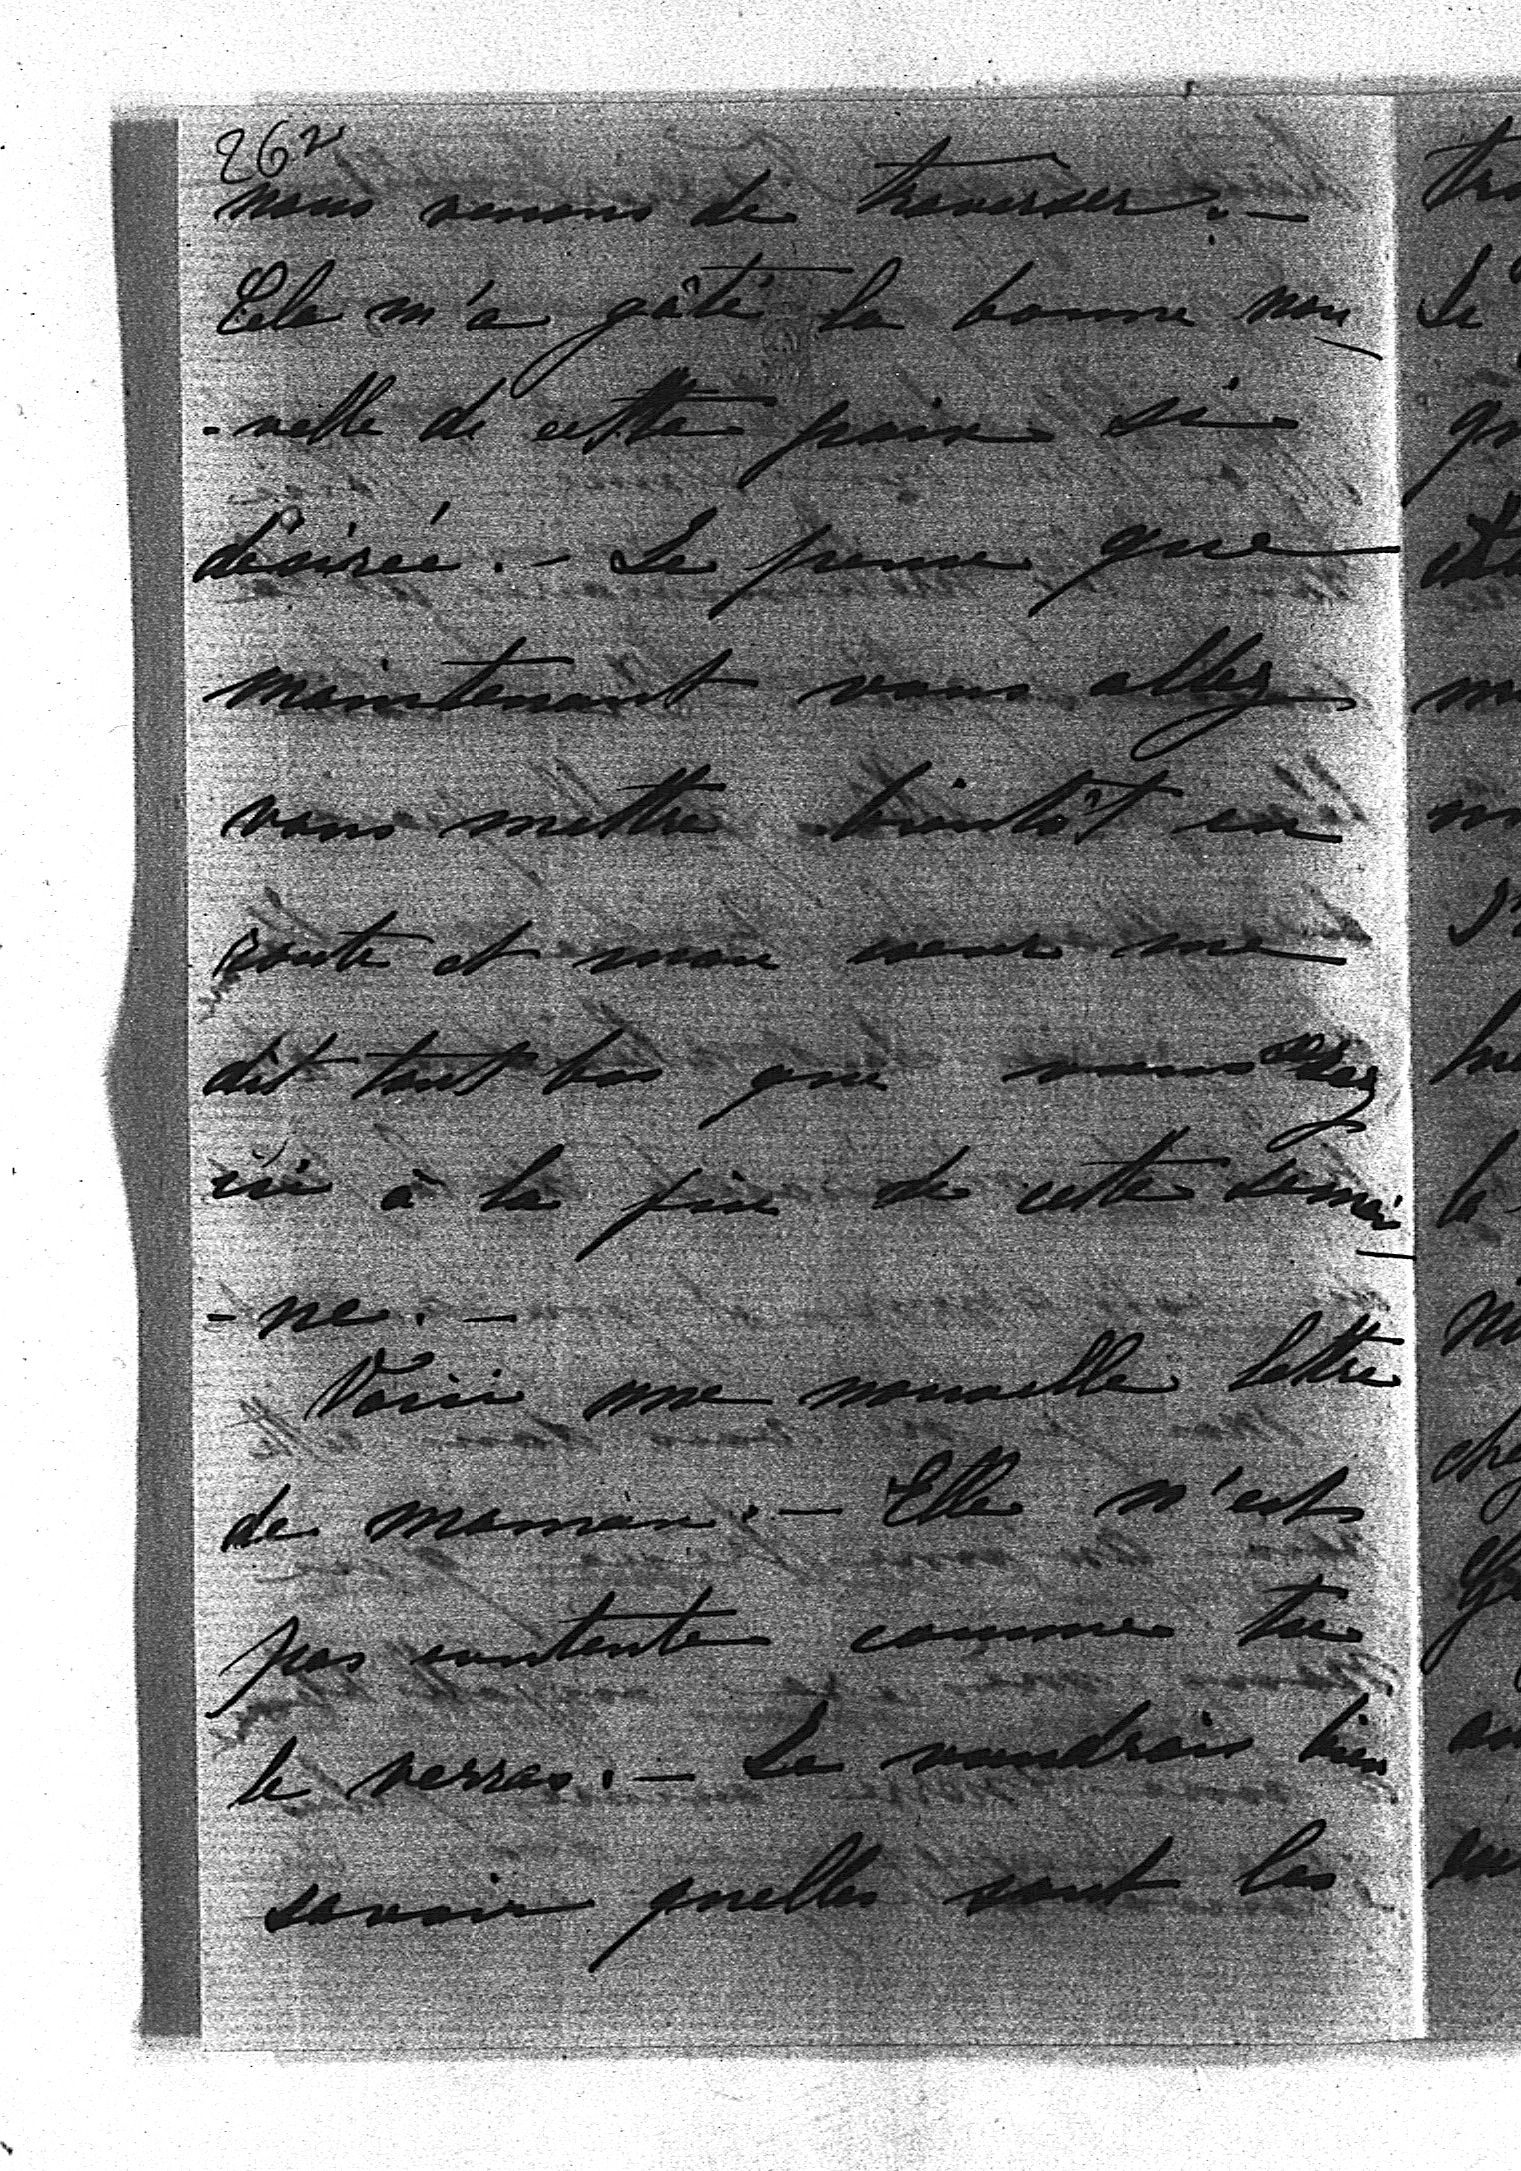 262
nous venons de traverser. —
Cela m'a gâté la bonne nou
-velle de cette paix si
désirée. — Je pense que
maintenant vous allez
vous mettre bientôt en
route et mon cœur me
dit tout bas que vous serez
ici à la fin de cette semai
-ne. —
Voici une nouvelle lettre
de maman. — Elle n'est
pas contente comme tu
le verras. — Je voudrais bien
savoir quelles sont les